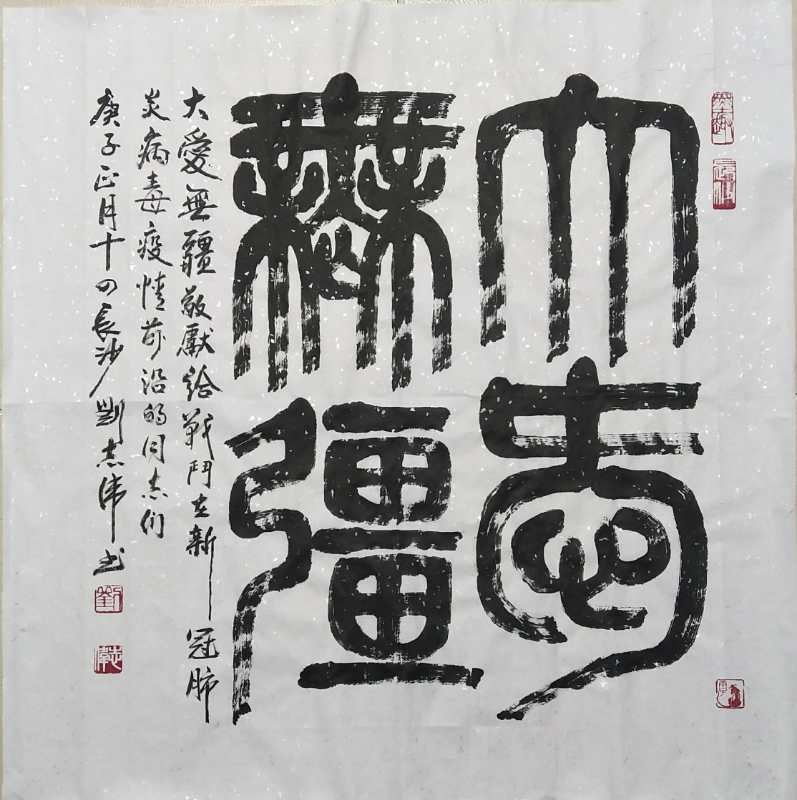 大愛
無疆
大愛無疆敬獻給戰鬥在新冠肺
炎病毒疫情前沿的同志们
庚子正月十四長沙劉志伟书